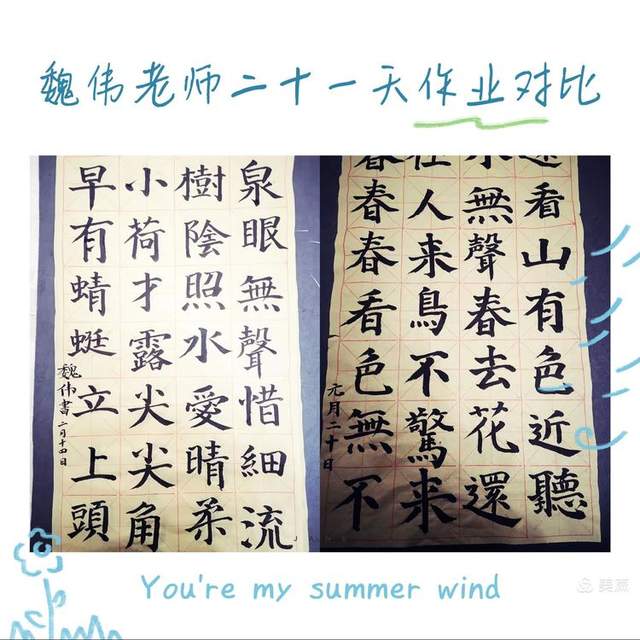 魏伟老师二十一天作业对比
泉眼無聲惜細流
樹陰照水愛晴柔
小荷才露尖尖角
早有蜻蜓立上頭
魏伟書二月十四日
遠看山有色近聽
水無聲春去花還
在人来鳥不驚来
春春春看色無不
元月二十日
You're my summer wind
美篇